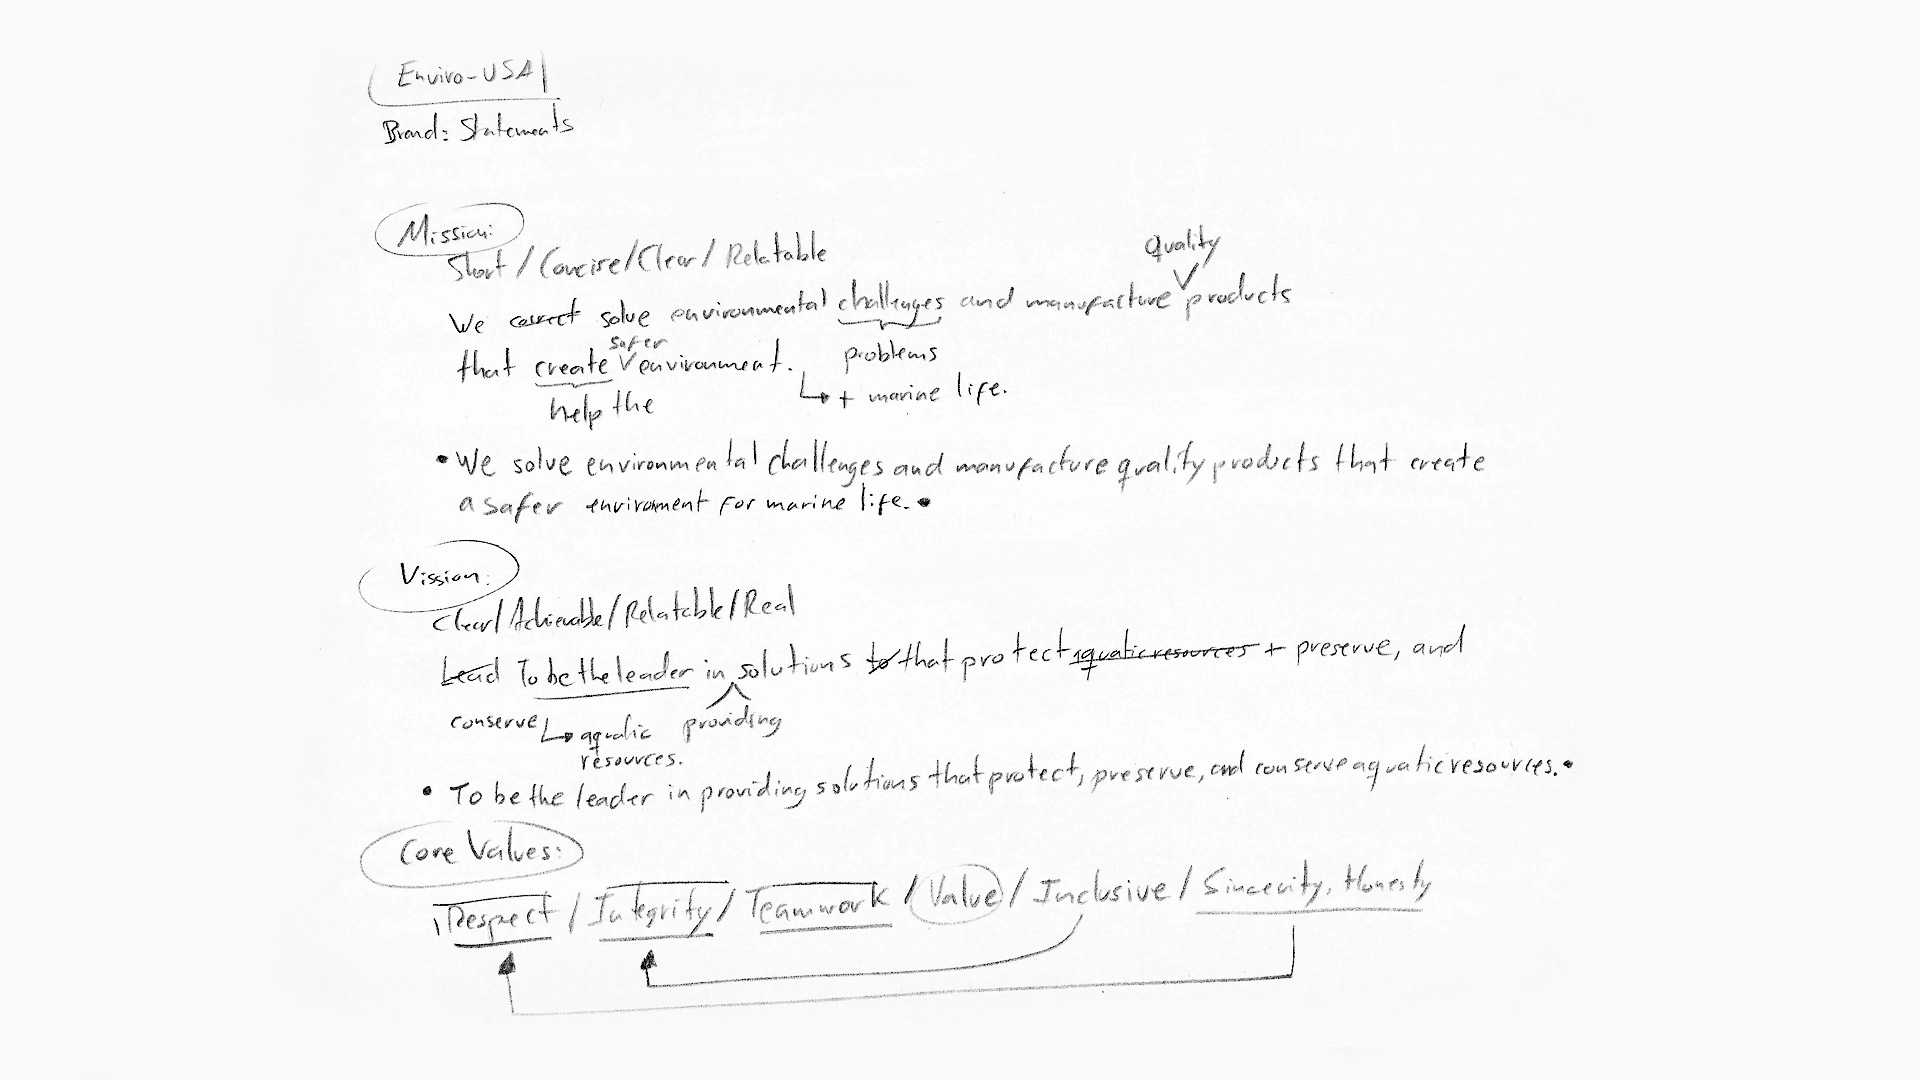 Enviro-USA
Brand: Statements
Mission:
Short / Concise / Clear / Relatable
quality
We correct solve environmental challenges and manufacture products
safer
that create environment. problems
help the + marine life.
• We solve environmental challenges and manufacture quality products that create
a safer environment for marine life. •
Vission:
Clear / Achievable / Relatable / Real
Lead To be the leader in solutions to that protect aquatic resources + preserve, and
conserve aquatic providing
resources.
• To be the leader in providing solutions that protect, preserve, and conserve aquatic resources. •
Core Values:
Respect / Integrity / Teamwork / Value / Inclusive / Sincerity, Honesty